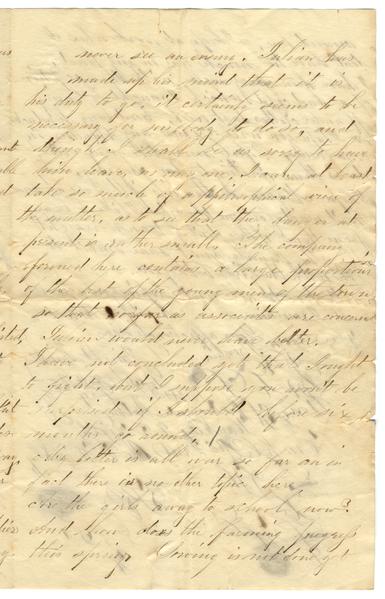 never see an enemy. Julian has
made up his mind that it is
his duty to go, it certainly seems to be
necessary for somebody to do so, and
though I shall be as sorry to have
him leave, as any one, I can at least
take so much of a philosophical view of
the matter, as to see that the danger at
present is rather small. The company
formed here contains a large proportion
of the best of the young men of the town
so that so far as associates are concerned
Julian would never have better.
I have not concluded yet that I ought
to fight, but I suppose you won't be
surprised if I should before six
months go
letter is all war so far on in
fact there is no other topic here
are the girls away to school now?
And how does the farming progress
this spring, Sowing is not done yet